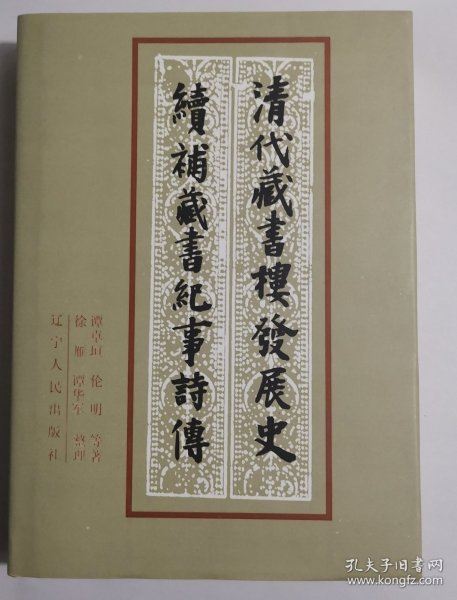 清代藏書樓發展史
續補藏書紀事詩傳
谭卓垣 伦明 等著
徐雁 谭华军 整理
辽宁人民出版社
孔夫子旧书网
www.kongfz.com